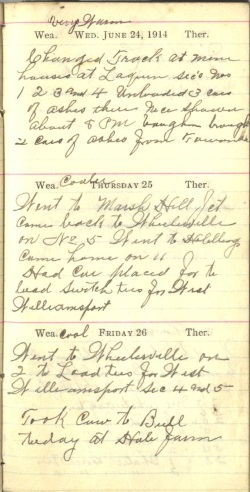 Very Warm
Wea. WED. JUNE 24, 1914 Ther.
Changed Track at mine
houses at Laquin Sec's Nos
1 2 3 and 4 Unloaded 3 cars
of ashes there Nice Shower
about 5 PM Vaughn brought
2 cars of ashes from Towanda
Wea. Cooler THURSDAY 25 Ther.
Went to Marsh Hill Jct
Came back to Wheelerville
on No 5 Went to
Came home on 11
Had Car placed for to
load Switch ties for West
Williamsport
Wea. Cool FRIDAY 26 Ther.
Went to Wheelerville on
2 to Load ties for West
Williamsport Sec 4 and 5
Took Cow to Bull
today at Hale farm